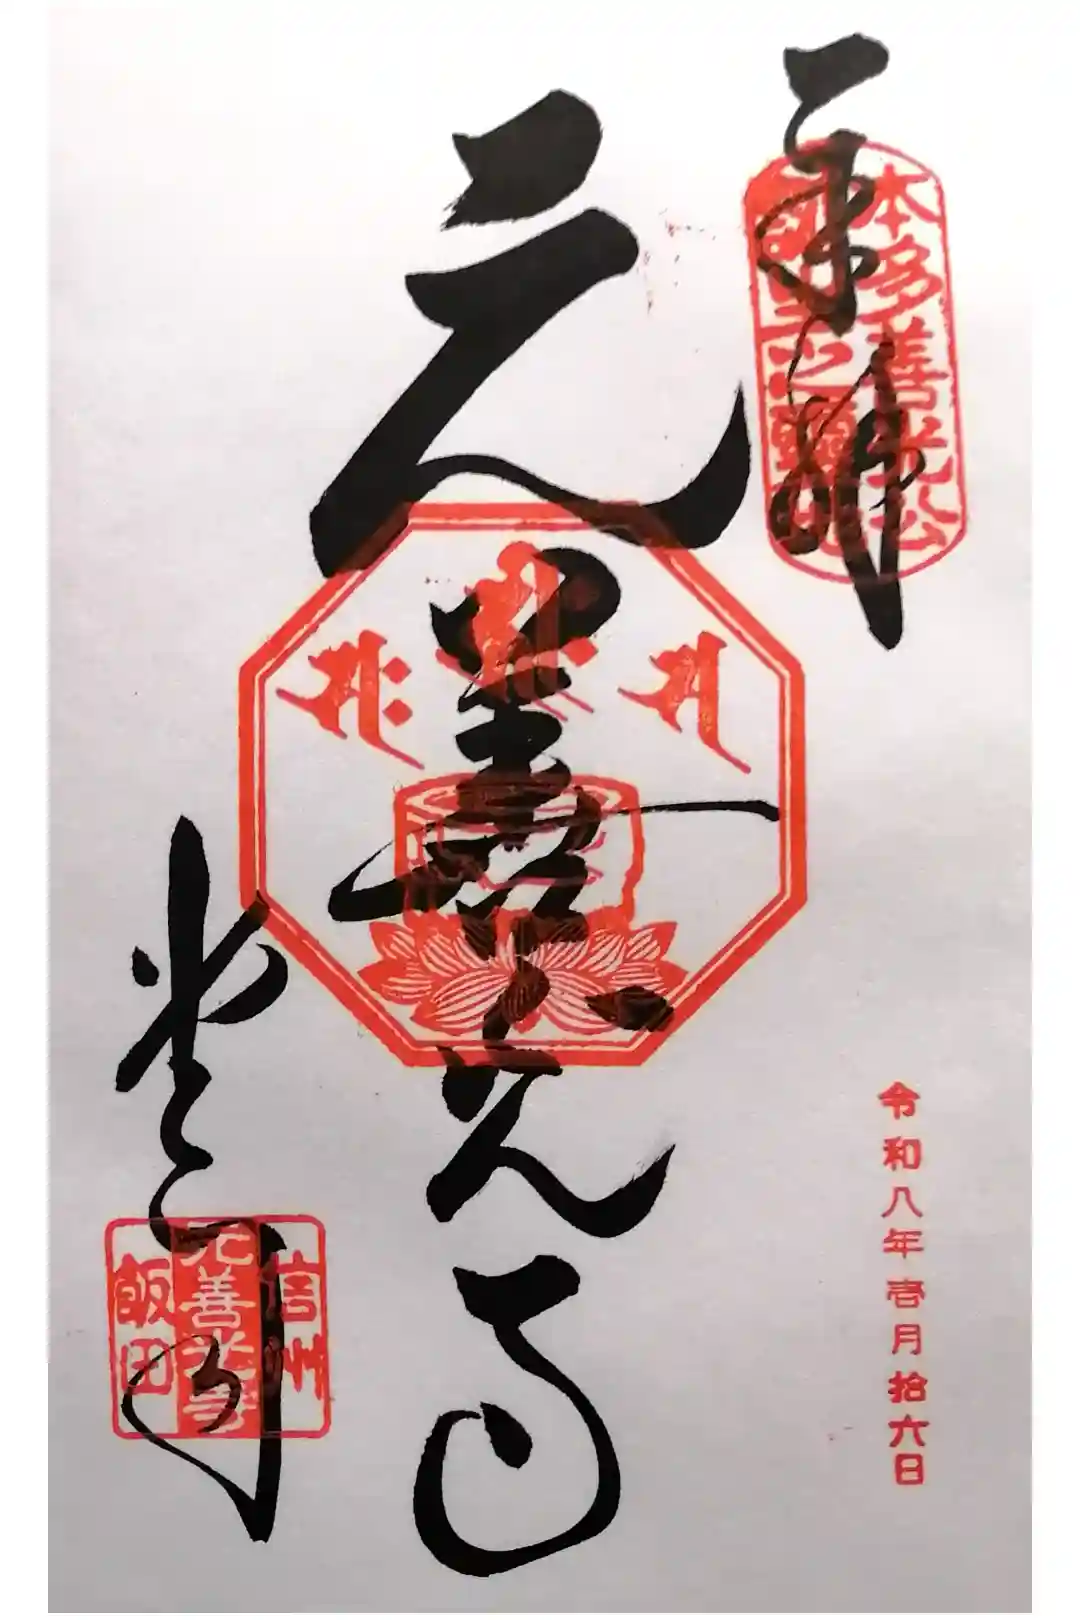 奉拝
本多善光公
元善光寺
令和八年壱月拾六日
信州
元善光寺
飯田